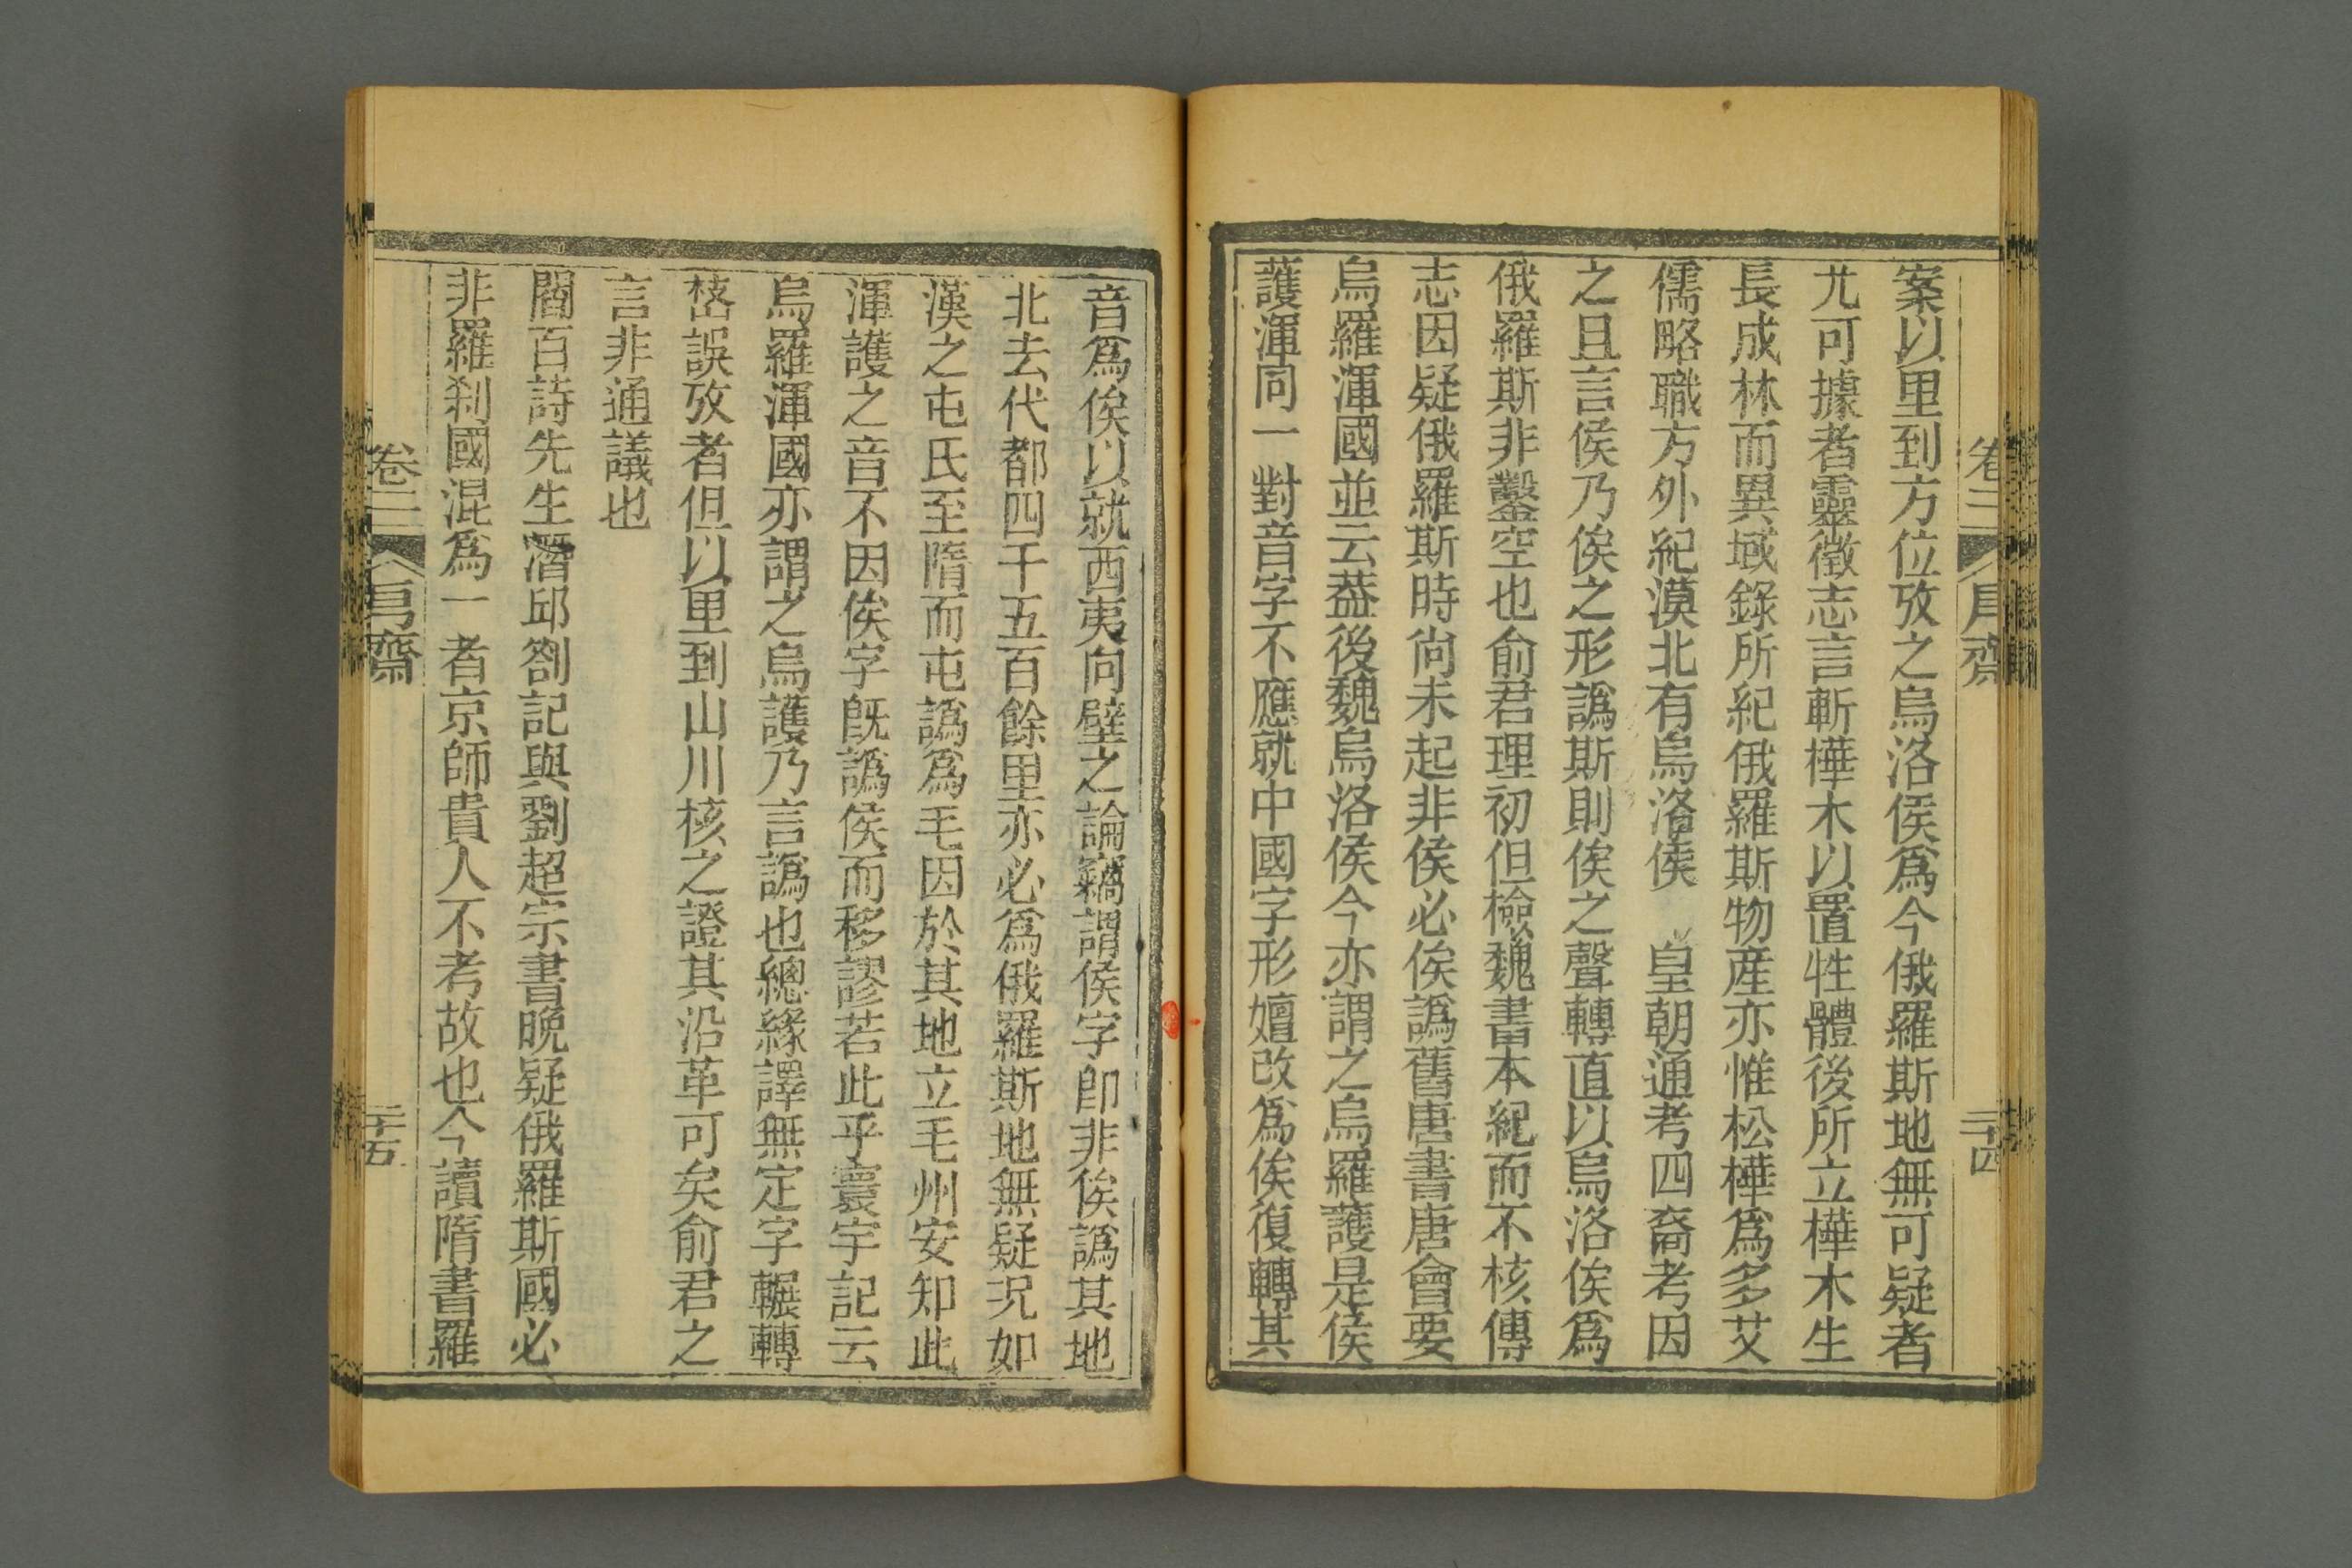 卷三 㐆齋 二十四
案以里到方位攷之烏洛侯爲今俄羅斯地無可疑者
尤可據者靈徵志言斬樺木以置牲體後所立樺木生
長成林而異域錄所紀俄羅斯物産亦惟松樺爲多艾
儒略職方外紀漠北有烏洛侯 皇朝通考四裔考因
之且言侯乃俟之形譌斯則俟之聲轉直以烏洛俟爲
俄羅斯非鑿空也俞君理初但檢魏書本紀而不核傳
志因疑俄羅斯時尚未起非侯必俟譌舊唐書唐會要
烏羅渾國並云葢後魏烏洛侯今亦謂之烏羅護是侯
護渾同一對音字不應就中國字形嬗改爲俟復轉其
音爲俟以就西夷向壁之論竊謂侯字卽非俟譌其地
北去代都四千五百餘里亦必爲俄羅斯地無疑況如
漢之屯氏至隋而屯譌爲毛因於其地立毛州安知此
渾護之音不因俟字旣譌侯而移謬若此乎寰宇記云
烏羅渾國亦謂之烏護乃言譌也總緣譯無定字輾轉
嵍誤攷者但以里到山川核之證其沿革可矣俞君之
言非通議也
閻百詩先生潛邱劄記與劉超宗書晚疑俄羅斯國必
非羅刹國混爲一者京師貴人不考故也今讀隋書羅
卷三 㐆齋 二十五